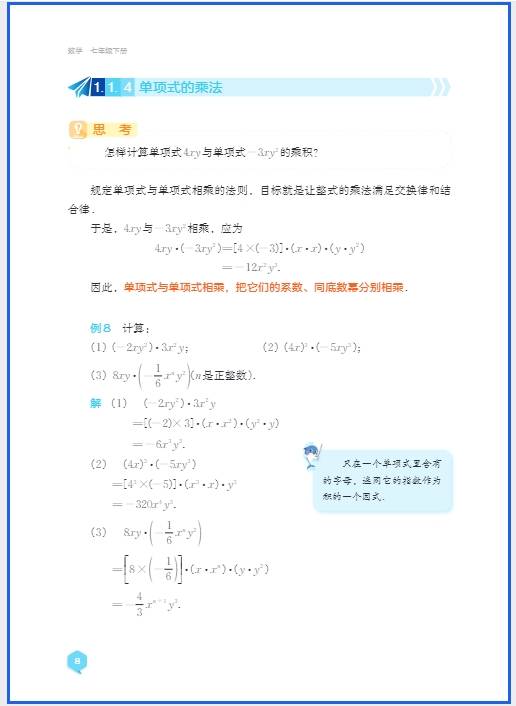 数学 七年级下册
1.1.4 单项式的乘法
思 考
怎样计算单项式4xy与单项式−3xy²的乘积?
规定单项式与单项式相乘的法则，目标就是让整式的乘法满足交换律和结
合律.
于是，4xy与−3xy²相乘，应为
4xy·(−3xy²)=[4×(−3)]·(x·x)·(y·y²)
=−12x²y³.
因此，单项式与单项式相乘，把它们的系数、同底数幂分别相乘.
例8 计算：
(1) (−2xy²)·3x²y; (2) (4x)³·(−5xy³);
(3) 8xy·(−1/6 xⁿy²)(n是正整数).
解 (1) (−2xy²)·3x²y
=[(−2)×3]·(x·x²)·(y²·y)
=−6x³y³.
(2) (4x)³·(−5xy³)
=[4³×(−5)]·(x³·x)·y³
=−320x⁴y³.
只在一个单项式里含有
的字母，连同它的指数作为
积的一个因式.
(3) 8xy·(−1/6 xⁿy²)
=[8×(−1/6)]·(x·xⁿ)·(y·y²)
=−4/3 xⁿ⁺¹y³.
8